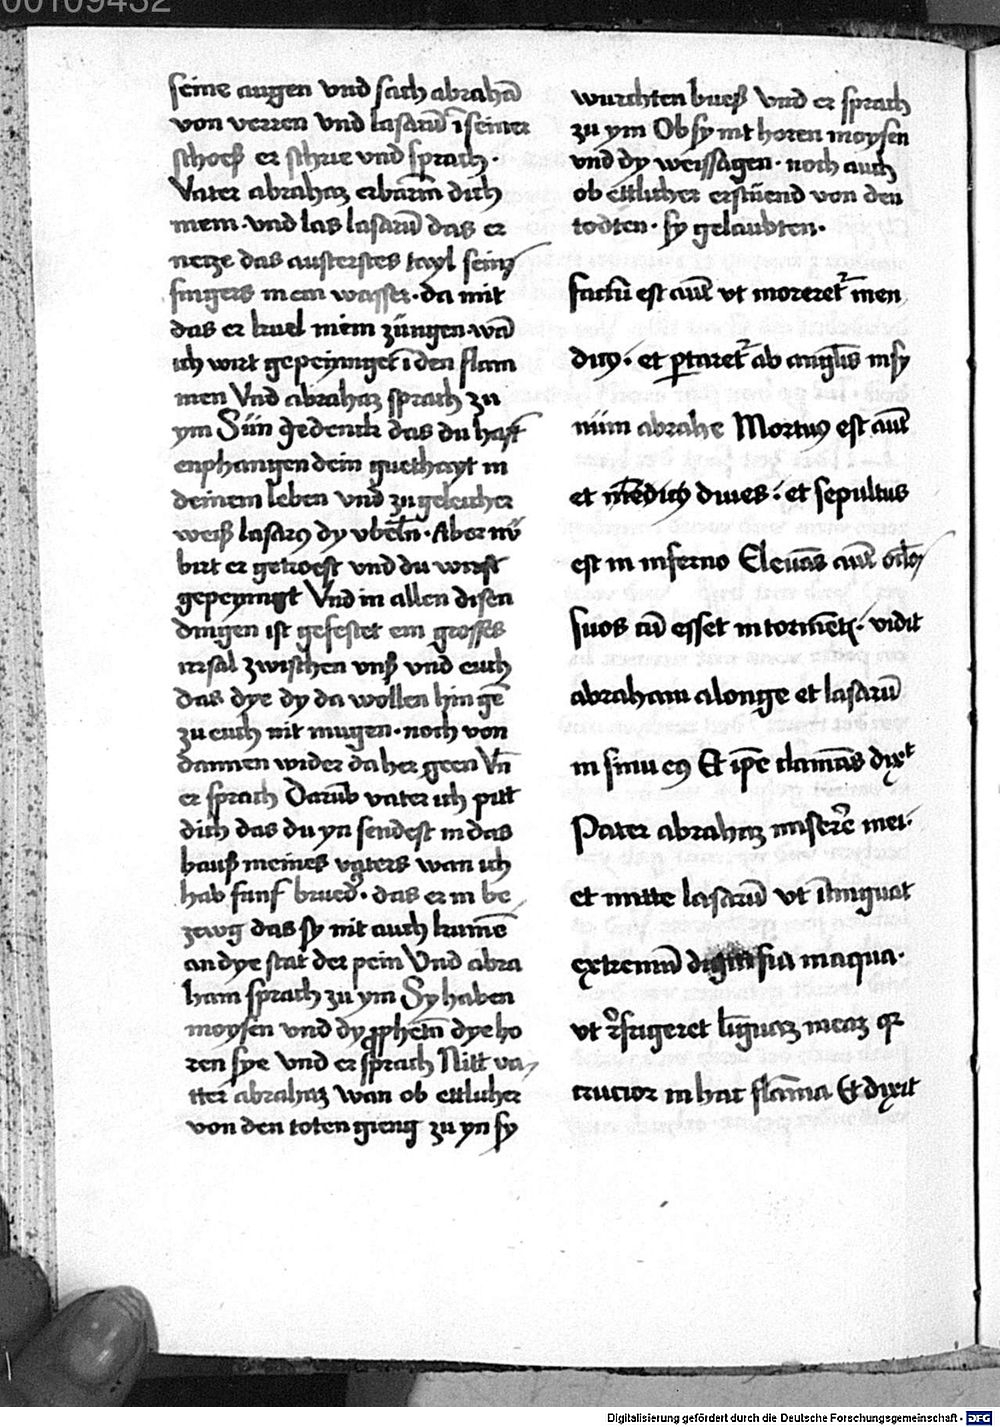 00109432
seine augen vnd sach abrahā
von verren vnd lasarū ī seiner
schoeß er schrie vnd sprach·
Vater abrahaz erbarm̄ dich
mein· vnd las lasarū das er
netze das austerstes tayl seinꝫ
fingers in ein wasser· da mit
das er kuel mein züngen wā
ich wirt gepeyniget ī den flam
men Vnd abrahaz sprach zu
ym Sün gedenck das du hast
enphangen dein guethayt in
deinem leben vnd zu geleicher
weiß lasarꝯ dy vbelīn· Aber nū
birt er getroest vnd du wirst
gepeynigt Vnd in allen disen
dingen ist gefestet ein grosses
irrsal zwischen vnß vnd euch
das dye dy da wollen hin gē
zu euch nit mugen· noch von
dannen wider da her geen Vn̄
er sprach Darūb vater ich pitt
dich das du yn sendest in das
hauß meines vaters wan ich
hab funf brued᾽· das er in be
zewg das sy nit auch kumē
an dye stat der pein Vnd abra
ham sprach zu ym Sy haben
moysen vnd dy ꝓphetn̄ dye ho
ren sye Vnd er sprach Nitt va
tter abrahaz wan ob ettlicher
von den toten gieng zu yn sy
wurchten bueß Vnd er sprach
zu ym Ob sy nit horen moysen
vnd dy weissagen· noch auch
ob ettlicher erstüend von den
todten· sy gelaubten·
factū est aūt vt moreret᷑ men
dicꝯ· et ꝑtaret᷑ ab anglīs in sy
nüm abrahe Mortuꝯ est aūt
et diues· et sepultus
est in inferno Eleuās aūt oclōs
suos cū esset in tormētꝭ· vidit
abraham a longe et lasarū
in sinu eiꝯ Et ip̄e clamās dixᵗ
Pater abrahaz miser̄e mei·
et mitte lasarū vt īt̄inguat
extremū digiti sui in aqua·
vt r᷑frigeret līguaz meaz qꝛ
crucior in hac flam̄a Et dixit
Digitalisierung gefördert durch die Deutsche Forschungsgemeinschaft - DFG